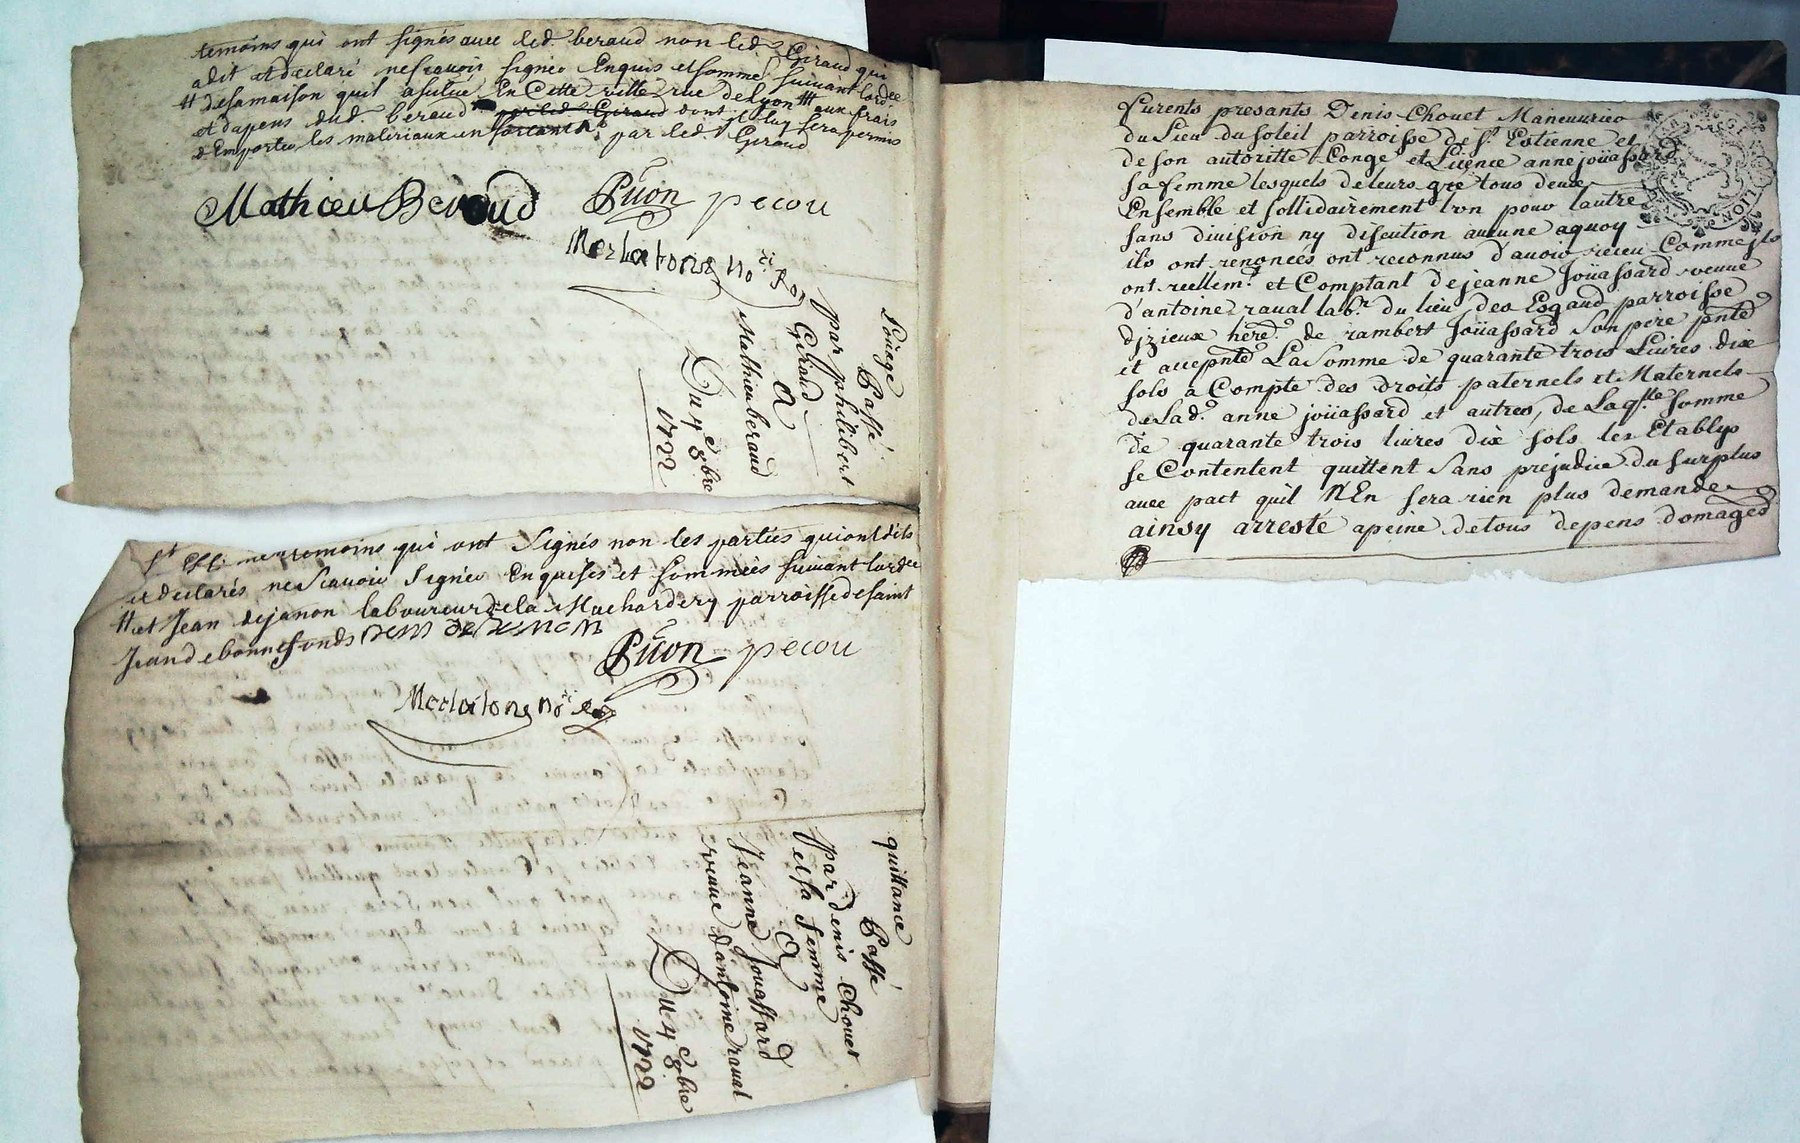 temoins qui ont signés avec led. beraud non led. Giraud qui
a dit et declaré ne scavoir signer Enquis et sommé suivant lord.ce
# de sa maison quil a située En Cette ville rue de Lyon # aux frais
et dapens dud. beraud par led. Giraud dont il luy sera permis
d'Emporter les materiaux en sortant par led. Giraud
Mathieu Beraud Püon pecou
Merlatong no.re
Loüage
Passé
par philibert
Giraud
A
Mathieu beraud
Du 4e 8bre
1722
St Estienne temoins qui ont Signés non les parties qui ont dits
et declarés ne Scavoir Signer Enquises et sommées suivant lord.ce
# et Jean dejanon laboureur de la Machardery parroisse de saint
Jean de bonnefonds
Püon pecou
Merlatong no.re
quittance
Passé
par denis Chouet
et sa femme
A
Jeanne Jouassard
veuve d'antoine raval
Du 4e 8bre
1722
Furents presants Denis Chouet Maneuvrier
du Lieu du soleil parroisse de St Estienne et
de son autoritté Congé et Licence anne joüassard
sa femme lesquels de leurs gré tous deux
Ensemble et sollidairement l'un pour lautre
sans division ny discution aucune aquoy
ils ont renoncés ont reconnus d'avoir receu Comme ils
ont reellem.t et Comptant de jeanne Joüassard veuve
d'antoine raval lab.r du lieu des Esgaud parroisse
dizieux here. de rambert Joüassard son pere pnte
et accepnte La Somme de quarante trois Livres dix
sols a Compte des droits paternels et Maternels
de Lad.e anne joüassard et autres, de Laq.lle somme
de quarante trois livres dix sols les Etablys
se Contentent quittent sans prejudice du surplus
avec pact quil N'En sera rien plus demandé
ainsy arresté apeine de tous depens domages